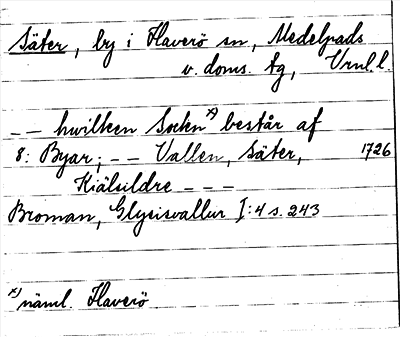 Säter, by i Haverö sn, Medelpads
v. doms. tg, Vnl.l.
-- hwilken Socken x) består af
8: Byar; -- Vallen, Säter, 1726
Kiälsildre ---
Broman, Glysisvallur I:4 s. 243
x) näml. Haverö